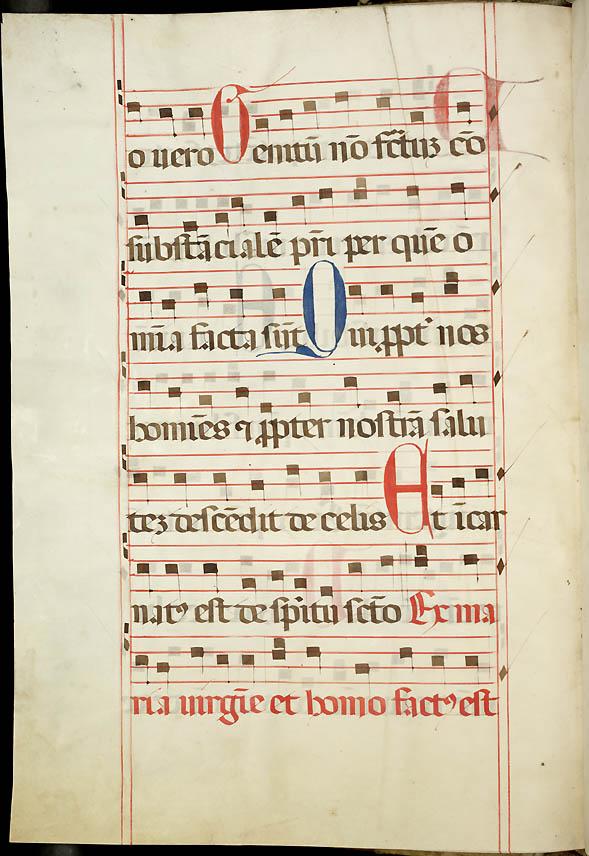 o uero Genitū nō fctuz cō
substācialē pri per quē o
mia facta sūt Qui ppt nos
homies ⁊ ppter nostrā salu
tez descēdit de celis Et icar
natꝯ est de spiritu scto Ex ma
ria uirgie et homo factꝯ est